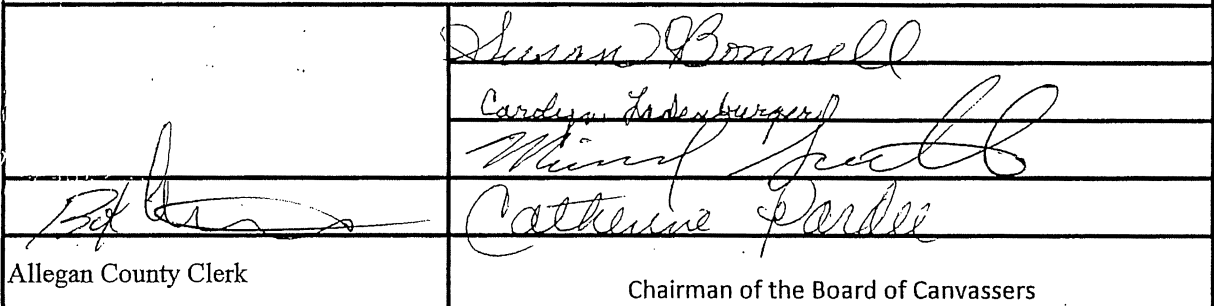 Susan Bonnell
Carolyn Ladenburger
Catherine Pardee
Allegan County Clerk
Chairman of the Board of Canvassers